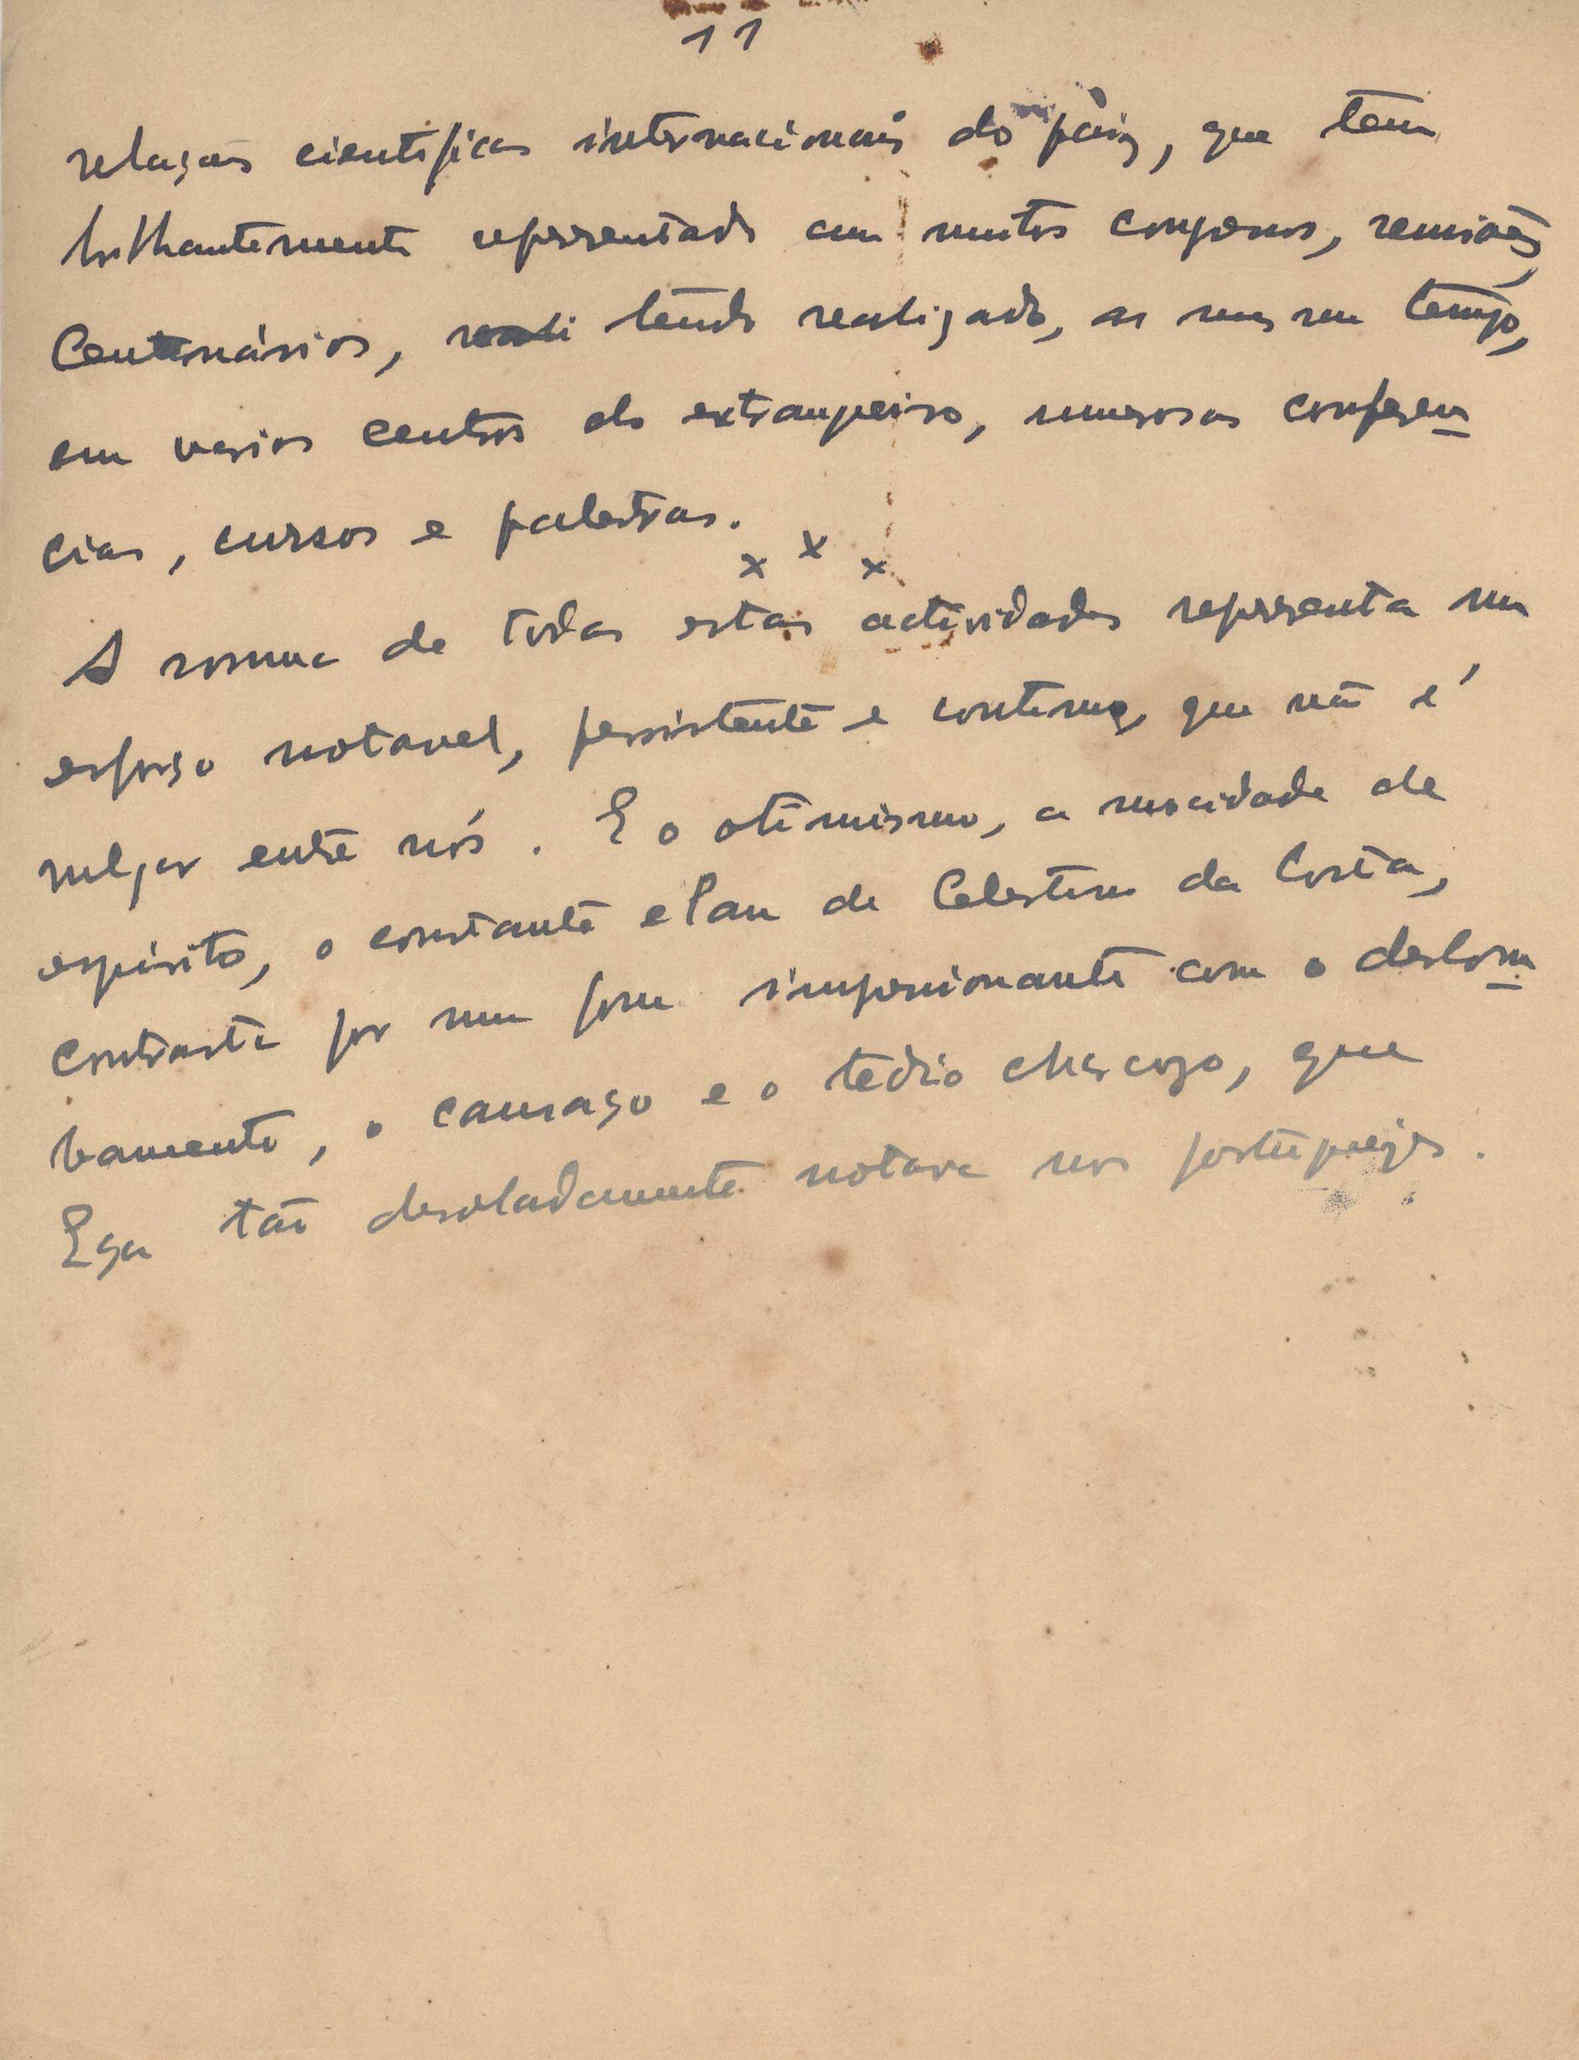 11
relações científicas internacionais do paiz, que tem
brilhantemente representado em muitos congressos, reuniões,
Centenários, tendo realizado, ao mesmo tempo,
em varios centros do extrangeiro, numerosas conferen
cias, cursos e palestras.
x x x
A somma de todas estas actividades representa um
esforço notavel, persistente e continuo, que não é
vulgar entre nós. E o otimismo, a mocidade de
espirito, o constante elan de Celestino da Costa,
contrasta por uma forma impressionante com o derlom
bamento, o cansaço e o tedio chercoso, que
Eça tão desoladamente notara nos portuguezes.